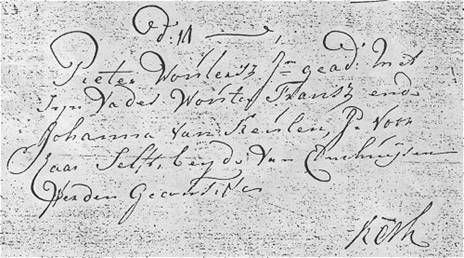 d: 11
Pieter Wouters J:m gead: met
Syn Vader Wouter Fransz ende
Johanna van Keulen, J:d Voor
Haar Selft, beyde Van Enchuijsen
Werden
Kerk